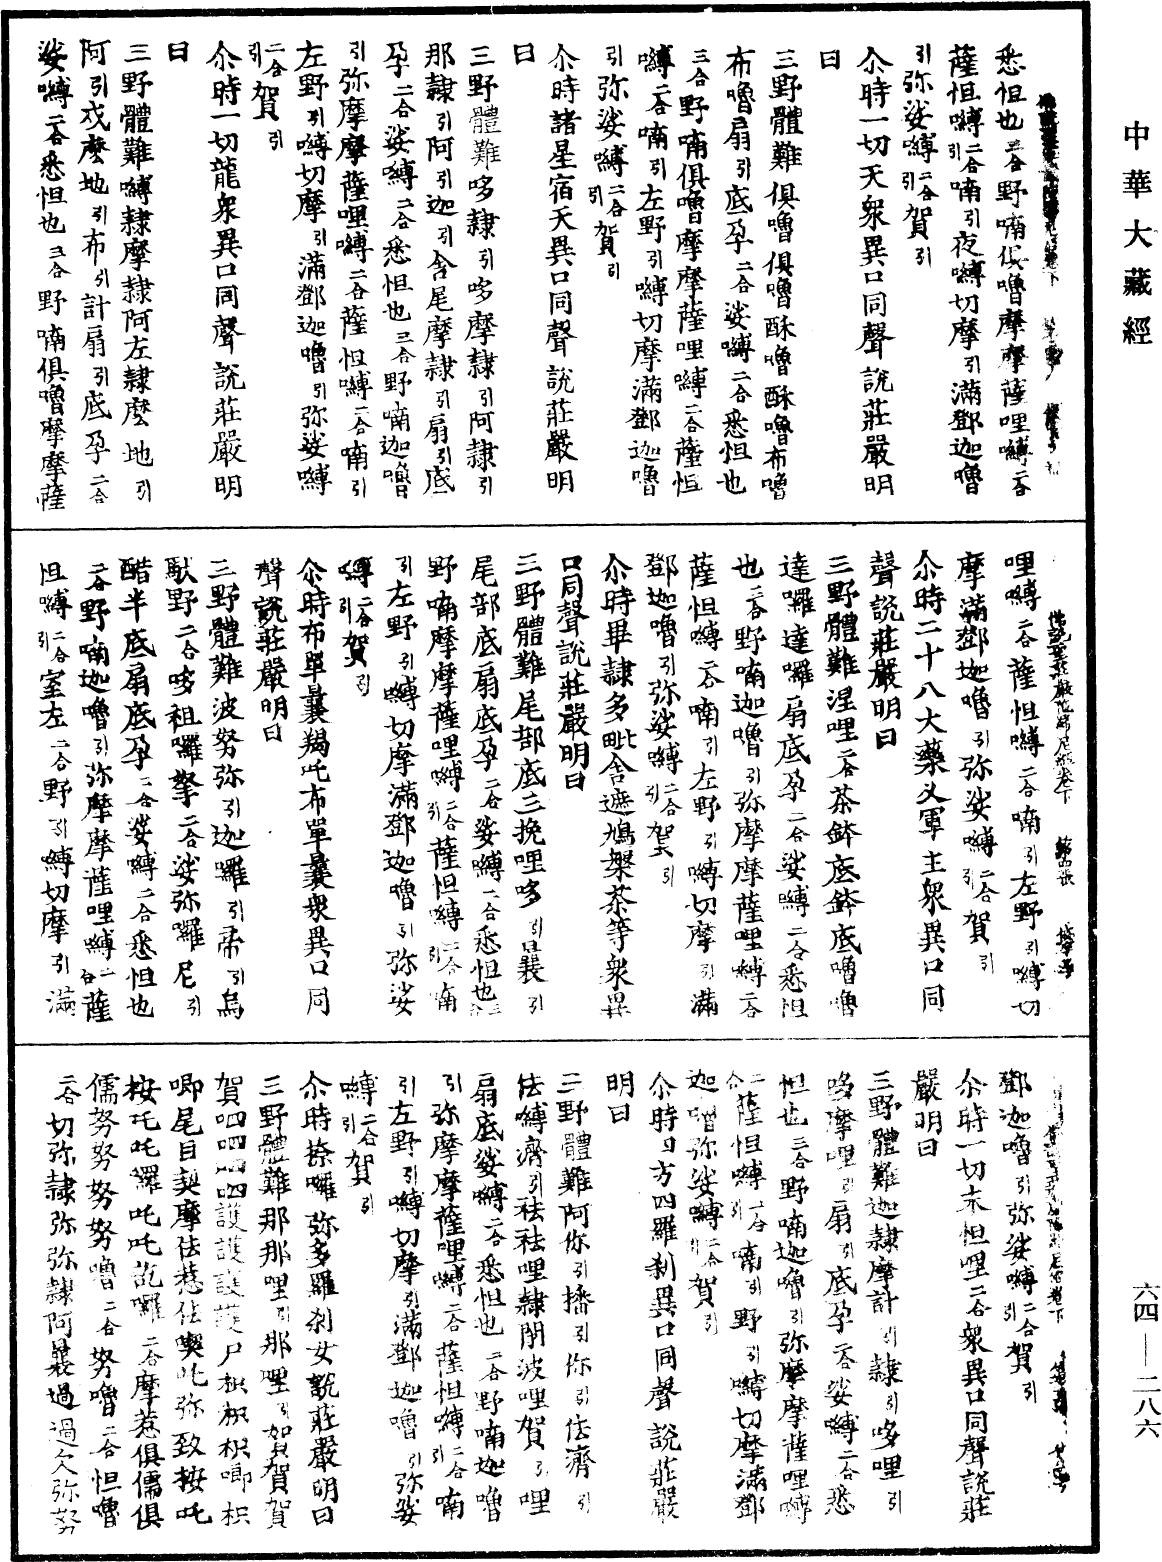 中華大藏經
悉怛也三合野喃俱嚕摩摩薩哩嚩二合
薩怛嚩二合引喃引夜嚩切摩引滿鄧迦嚕
引弥娑嚩二合引賀引
尒時一切天衆異口同聲說莊嚴明
曰
三野體難俱嚕俱嚕酥嚕酥嚕布嚕
布嚕扇引底孕二合娑嚩二合悉怛也
三合野喃俱嚕摩摩薩哩嚩二合薩怛
嚩二合喃引左野引嚩切摩滿鄧迦嚕
引弥娑嚩二合引賀引
尒時諸星宿天異口同聲說莊嚴明
曰
三野體難哆隷引哆摩隷引阿隷引
那隷引阿引迦引舍尾摩隷引扇引底
孕二合娑嚩二合悉怛也三合野喃迦嚕
引弥摩摩薩哩嚩二合薩怛嚩二合喃引
左野引嚩切摩引滿鄧迦嚕引弥娑嚩
二合引賀引
尒時一切龍衆異口同聲說莊嚴明
曰
三野體難嚩隷摩隷阿左隷麽地引
阿引戍麽地引布引計扇引底孕二合
娑嚩二合悉怛也三合野喃俱嚕摩摩薩
哩嚩二合薩怛嚩二合喃引左野引嚩切
摩滿鄧迦嚕引弥娑嚩二合引賀引
尒時二十八大藥叉軍主衆異口同
聲說莊嚴明曰
三野體難涅哩二合茶鉢底鉢底嚕嚕
達囉達囉扇底孕二合娑嚩二合悉怛
也二合野喃迦嚕引弥摩摩薩哩嚩二合
薩怛嚩二合喃引左野引嚩切摩引滿
鄧迦嚕引弥娑嚩二合引賀引
尒時畢隷多毗舍遮鳩槃茶等衆異
口同聲說莊嚴明曰
三野體難尾部底三挽哩哆引曩引
尾部底扇底孕二合娑嚩二合悉怛也三合
野喃摩摩薩哩嚩二合引薩怛嚩二合引喃
引左野引嚩切摩滿鄧迦嚕引弥娑
嚩二合引賀引
尒時布單曩羯吒布單曩衆異口同
聲說莊嚴明曰
三野體難波努弥引迦囉引帝引烏
馱野二合哆祖囉拏二合娑弥囉尼引
醋半底扇底孕二合娑嚩二合悉怛也
二合野喃迦嚕引弥摩摩薩哩嚩二合薩
怛嚩二合引室左二合野引嚩切摩引滿
鄧迦嚕引弥娑嚩二合引賀引
尒時一切末怛哩二合衆異口同聲說莊
嚴明曰
三野體難迦隷摩計引隷引哆哩引
哆摩哩引扇引底孕二合娑嚩二合悉
怛也三合野喃迦嚕引弥摩摩薩哩嚩
二合薩怛嚩二合引喃引野引嚩切摩滿鄧
迦嚕弥娑嚩二合引賀引
尒時四方四羅刹異口同聲說莊嚴
明曰
三野體難阿你引播引你引佉濟引
佉嚩濟引袪袪哩隷閉波哩賀引哩
扇底娑嚩二合悉怛也二合野喃迦嚕
引弥摩摩薩哩嚩二合薩怛嚩二合引喃
引左野引嚩切摩引滿鄧迦嚕引弥娑
嚩二合引賀引
尒時捺囉弥多羅刹女說莊嚴明曰
三野體難那那哩引那哩引賀賀賀
賀呬呬呬呬護護護護尸枳枳枳唧枳
唧尾目契摩佉惹佉喫吒弥致按吒
按吒吒羅吒吒訖囉二合摩惹俱儒俱
儒努努努努嚕二合努嚕二合怛嚕
二合切弥隷弥弥隷阿曩過過欠弥努
六四—二八六